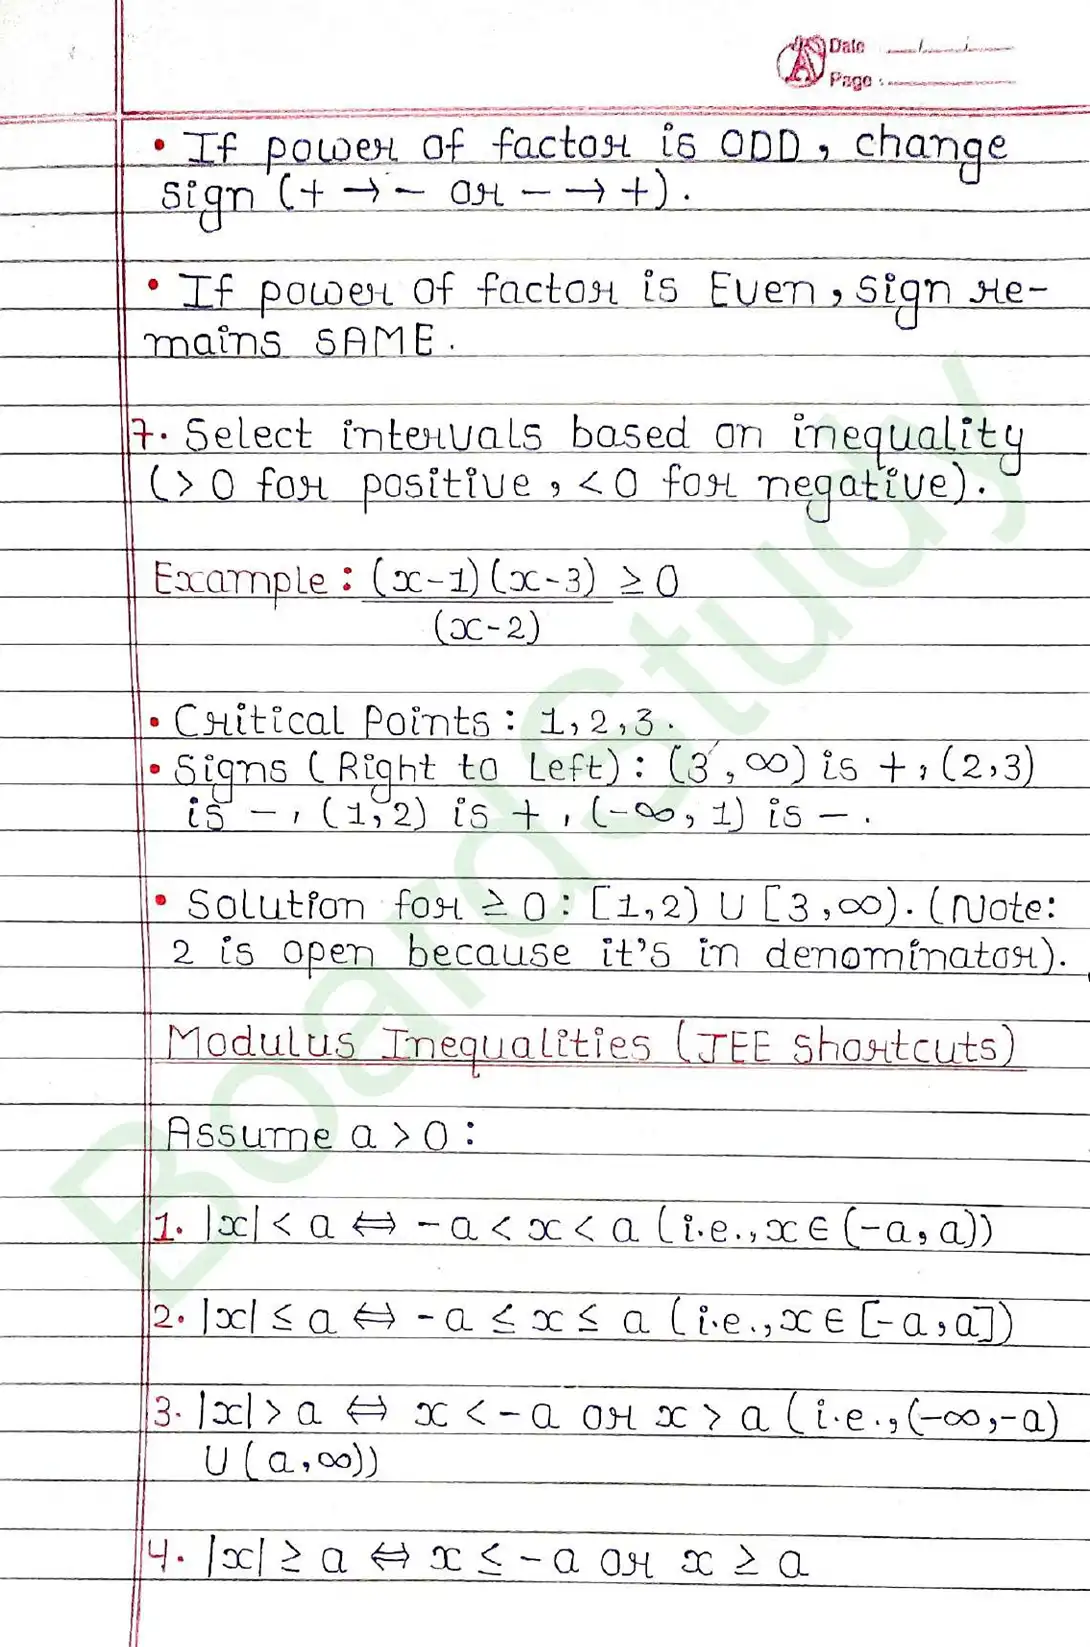 Date
Page :
• If power of factor is ODD, change
sign (+ → − or − → +).
• If power of factor is Even, sign re-
mains SAME.
7. Select intervals based on inequality
(> 0 for positive, < 0 for negative).
Example : (x-1)(x-3) ≥ 0
(x-2)
• Critical Points : 1, 2, 3.
• Signs (Right to Left) : (3, ∞) is +, (2,3)
is −, (1,2) is +, (-∞, 1) is −.
• Solution for ≥ 0 : [1,2) ∪ [3,∞). (Note:
2 is open because it's in denominator).
Modulus Inequalities (JEE Shortcuts)
Assume a > 0 :
1. |x| < a ⇔ -a < x < a (i.e., x ∈ (-a, a))
2. |x| ≤ a ⇔ -a ≤ x ≤ a (i.e., x ∈ [-a, a])
3. |x| > a ⇔ x < -a or x > a (i.e., (-∞, -a)
∪ (a, ∞))
4. |x| ≥ a ⇔ x ≤ -a or x ≥ a
BoardStudy